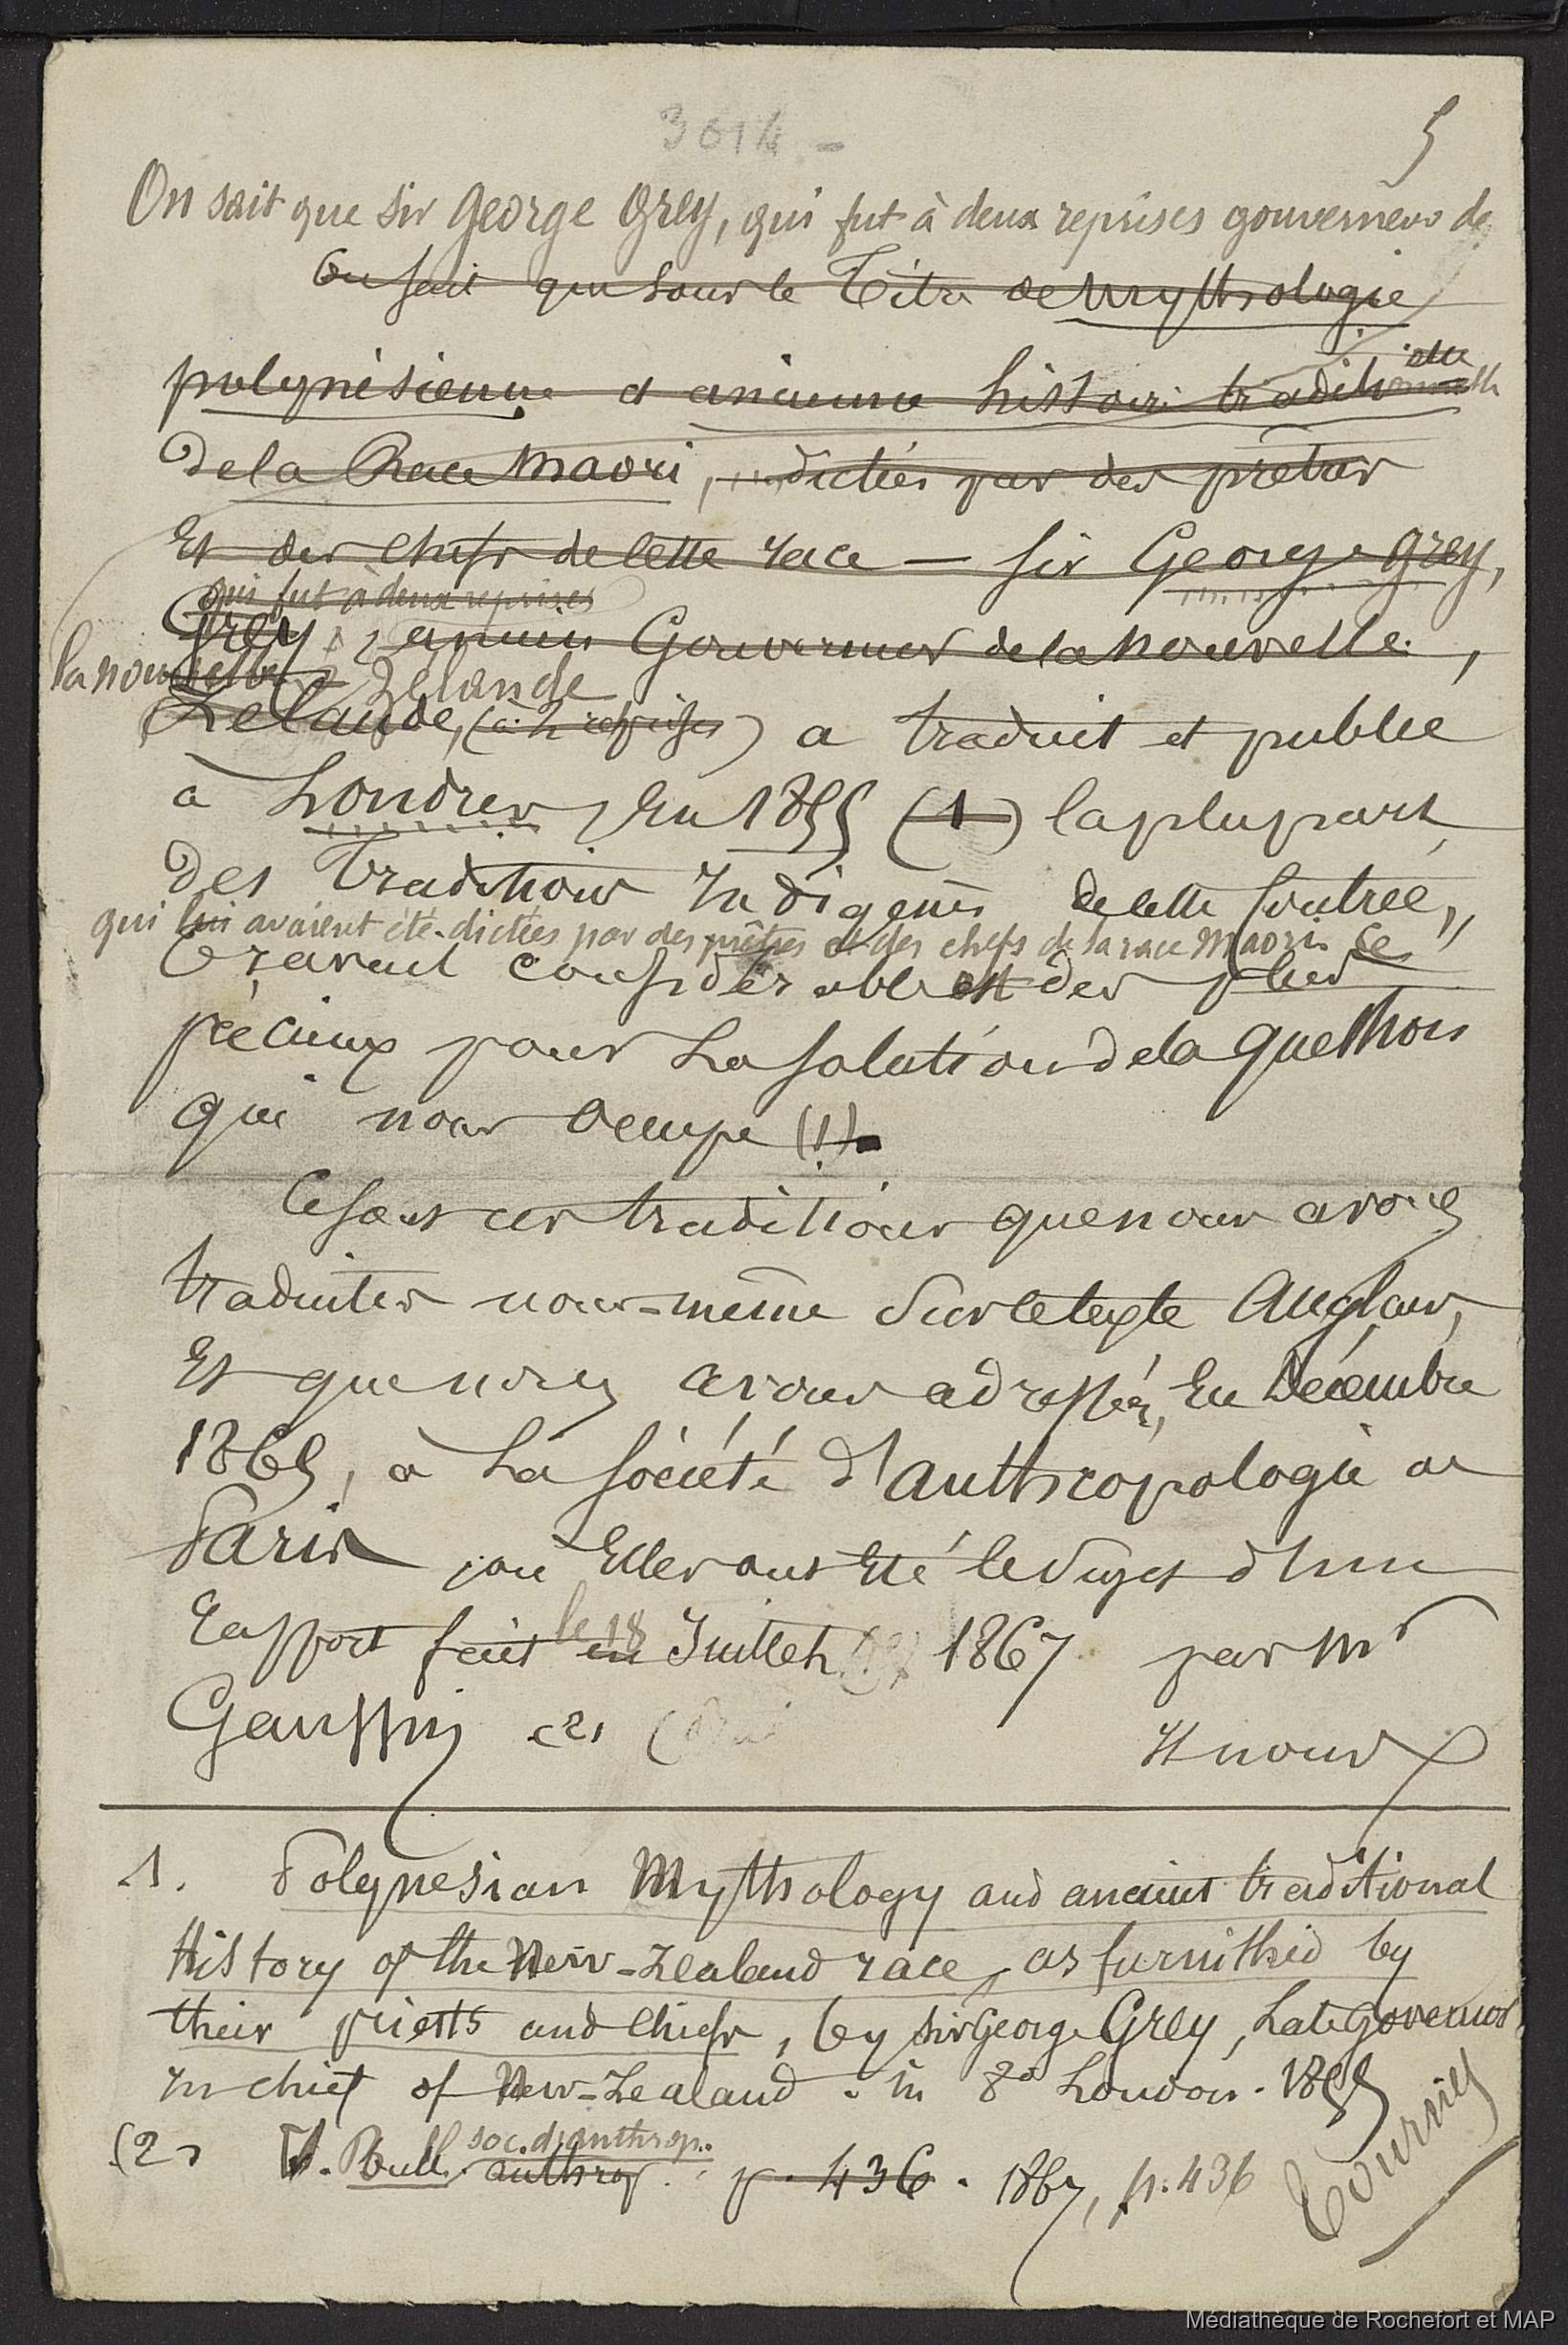 3014 -
5
On sait que sir George Grey, qui fut à deux reprises gouverneur de
On sait que sous le Titre de Mythologie
polynésienne et ancienne histoire traditionnelle
de la Race Maori, dictées par des prêtres
Et des chefs de cette race — sir George Grey,
qui fut à deux reprises
Grey, ancien Gouverneur de la nouvelle
la nouvelle Zélande
Zélande, (à 2 reprises) a traduit et publié
à Londres, En 1855 (1) la plupart
des Traditions Indigènes de cette contrée,
qui lui avaient été dictées par des prêtres et des chefs de la race Maori. Ce
travail considérable est des plus
précieux pour La solution de la question
qui nous occupe (1).
Ce sont ces traditions que nous avons
traduites nous-même sur le texte Anglais,
Et que nous avons adressées, En Décembre
1865, à La Société d'anthropologie de
Paris, où Elles ont Eté le sujet d'un
Rapport fait en le 18 Juillet 1867 par Mr
Gaussin (2)
Et nous
1. Polynesian Mythology and ancient traditional
History of the New-Zealand race, as furnished by
their priests and chiefs, by sir George Grey, Late governor
in chief of New-Zealand. in 8° London. 1855
(2) V. Bull. soc. d'anthrop.
anthrop. p. 436. 1867, p. 436
Tournies
Médiathèque de Rochefort et MAP